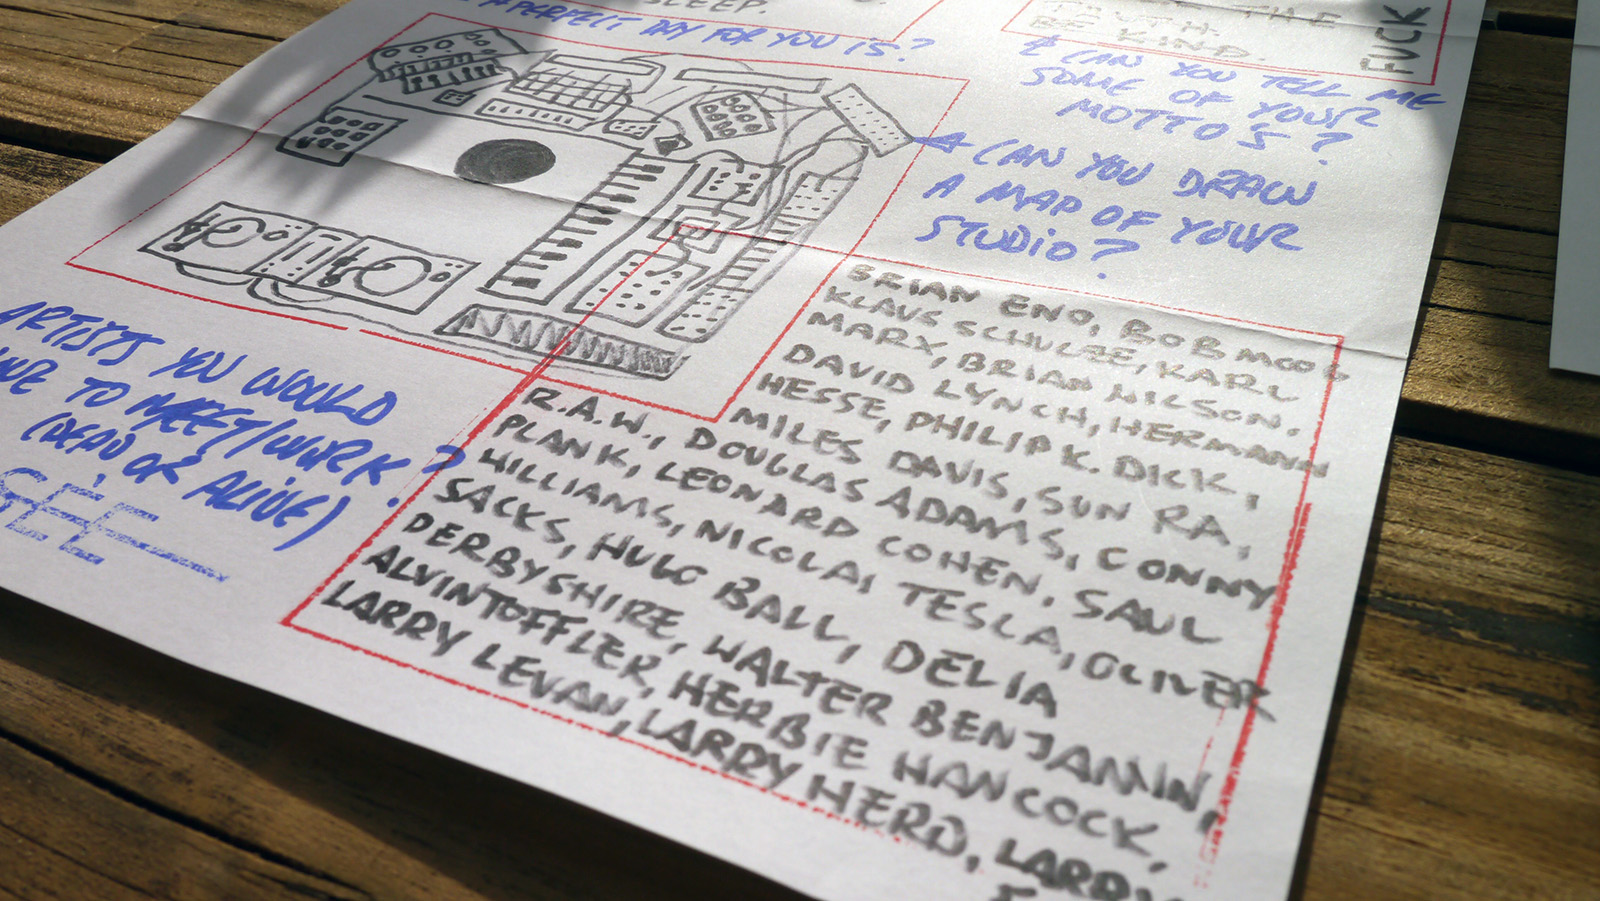 SLEEP.
A PERFECT DAY FOR YOU IS?
THE
TRUTH.
BE KIND.
FUCK
& CAN YOU TELL ME
SOME OF YOUR
MOTTOS?
CAN YOU DRAW
A MAP OF YOUR
STUDIO?
ARTISTS YOU WOULD
TO MEET/WORK?
(DEAD OR ALIVE)
BRIAN ENO, BOB MOOG
KLAUS SCHULZE, KARL
MARX, BRIAN WILSON,
DAVID LYNCH, HERMANN
HESSE, PHILIP K. DICK,
MILES DAVIS, SUN RA,
R.A.W., DOUGLAS ADAMS, CONNY
PLANK, LEONARD COHEN, SAUL
WILLIAMS, NICOLA TESLA, OLIVER
SACKS, HUGO BALL, DELIA
DERBYSHIRE, WALTER BENJAMIN,
ALVIN TOFFLER, HERBIE HANCOCK,
LARRY LEVAN, LARRY HERD, LARRY